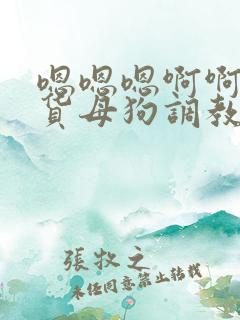 嗯嗯嗯啊啊
貢母狗調教
張牧之
未经同意禁止转载